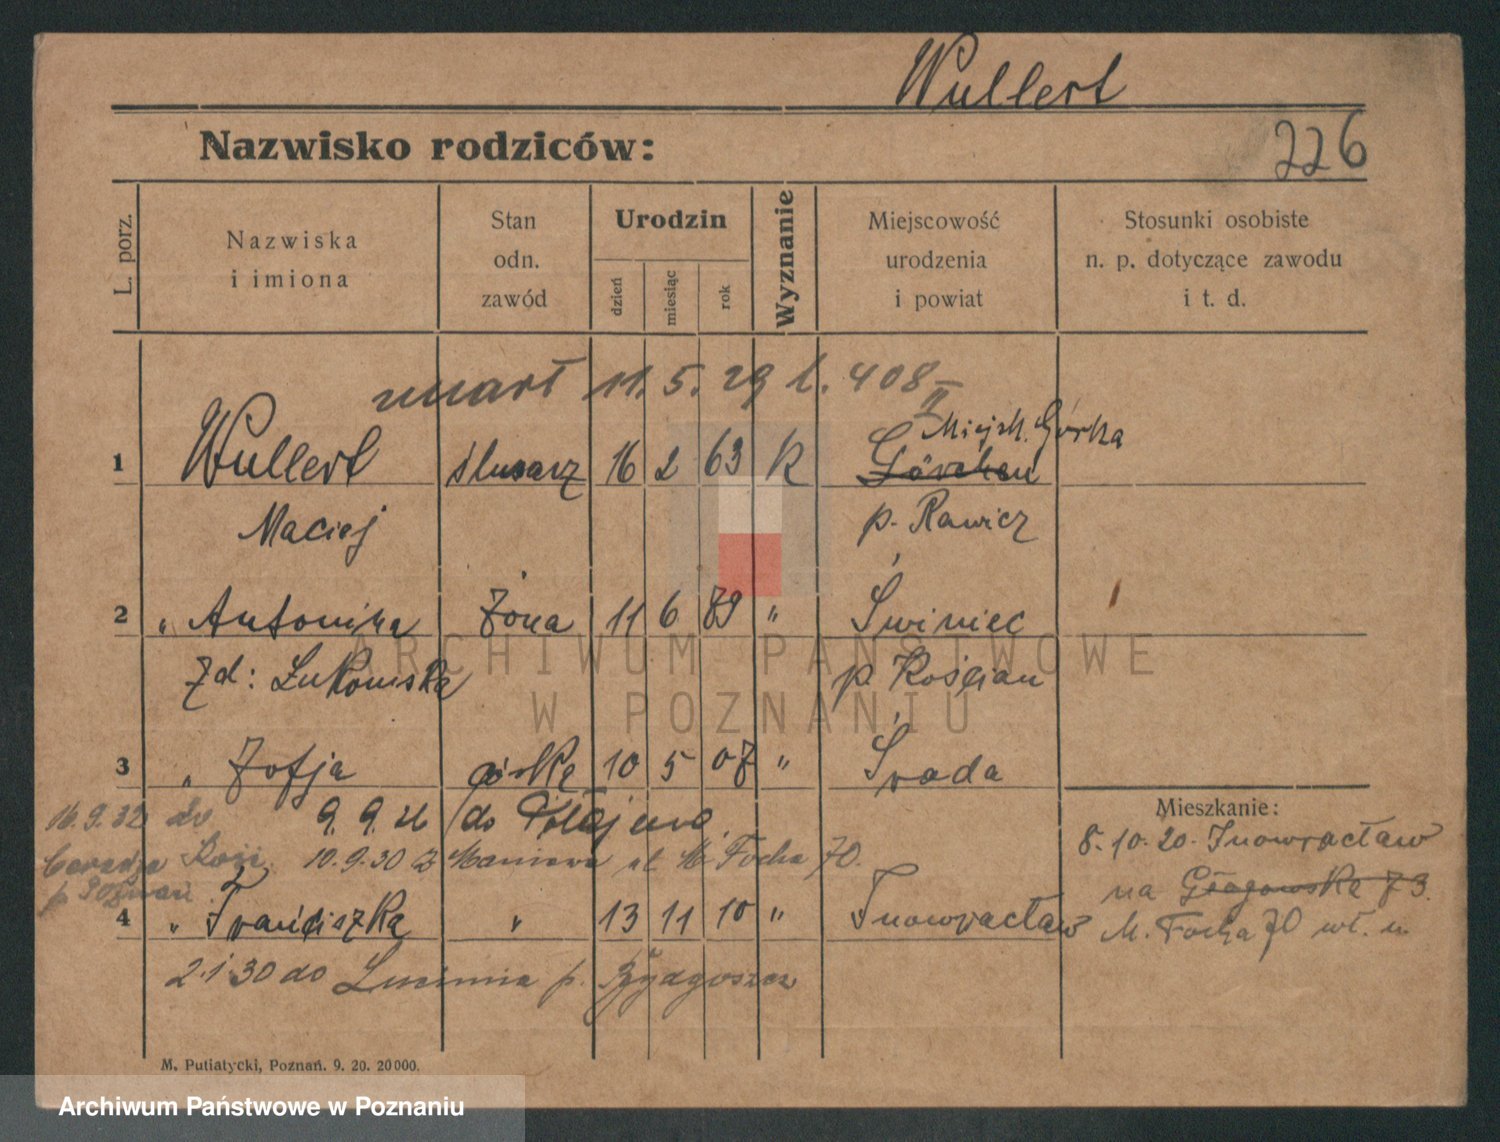 Wullert
Nazwisko rodziców:
226
L. porz.
Nazwiska i imiona
Stan odn. zawód
Urodzin
dzień
miesiąc
rok
Wyznanie
Miejscowość urodzenia i powiat
Stosunki osobiste n. p. dotyczące zawodu i t. d.
umarł 11. 5. 29 l. 408 II
Miejsk. Górka
1 Wullert ślusarz 16 2 63 k Görchen
Maciej p. Rawicz
2 " Antonina żona 11 6 79 " Świniec
zd: Łukomska p. Kościan
ARCHIWUM PAŃSTWOWE
W POZNANIU
3 " Zofja córka 10 5 07 " Środa
Mieszkanie:
16.9.32 do 9. 9. 26 do
10.9.30 z ul. M. Focha 70.
p. Poznań
8.10.20. Inowracław
na Głogowska 73.
4 " Franciszka " 13 11 10 " Inowracław
M. Focha 70 wł. u.
2.1.30 do p. Bydgoszcz
M. Putiatycki, Poznań. 9. 20. 20000.
Archiwum Państwowe w Poznaniu